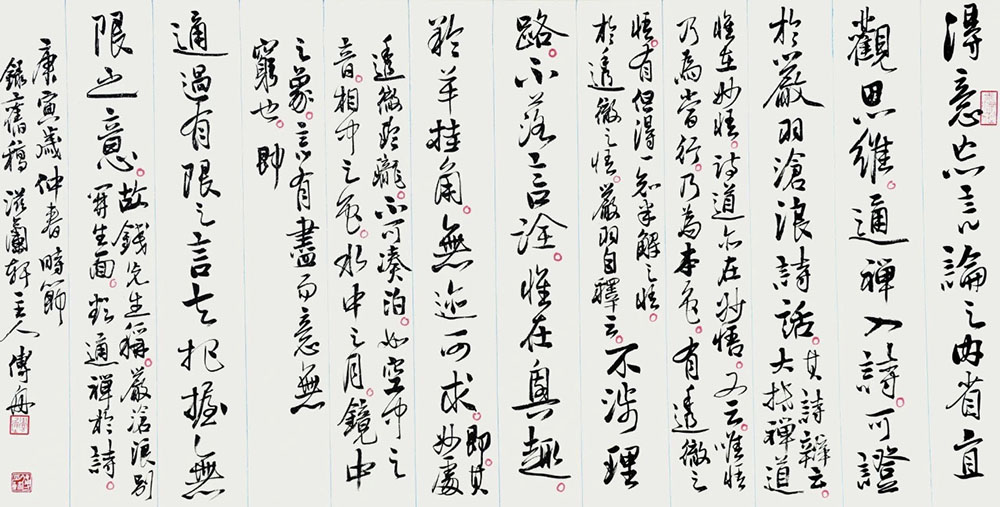 得意忘言論之內省直
觀思維。通禪入詩。可證
於嚴羽滄浪詩話。其詩辯云。大抵禪道
惟在妙悟。詩道亦在妙悟。又云。唯悟
乃為當行。乃為本色。有透徹之
悟。有但得一知半解之悟。
於透徹之悟。嚴羽自釋云。不涉理
路。不落言詮。惟在興趣。
羚羊挂角。無迹可求。即其妙處
透徹玲瓏。不可湊泊。如空中之
音。相中之色。水中之月。鏡中
之象。言有盡而意無
窮也。即
通過有限之言去把握無
限之意。故錢先生稱。嚴滄浪別開生面。通禪於詩。
康寅歲仲春時節
錄舊稿 滋蘭軒主人傅舟